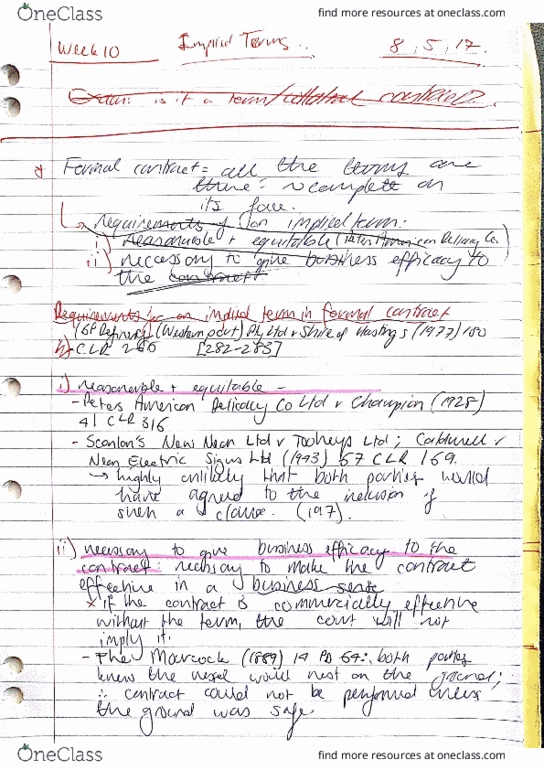 OneClass
find more resources at oneclass.com
Week 10 Implied Terms.. 8, 5, 17.
is it a term/collateral contract?
Formal contract = all the terms are
there = complete on
its face.
requirements of an implied term:
i) Reasonable + equitable (Peters American Delicacy Co.)
ii) necessary to give business efficacy to
the contract
Requirements for an implied term in formal contract
(BP Refinery (Westernport) Pty Ltd v Shire of Hastings (1977) 180
CLR 266 [282-283]
i) reasonable + equitable -
- Peters American Delicacy Co Ltd v Champion (1928)
41 CLR 316
- Scanlon's New Neon Ltd v Tooheys Ltd; Caldwell v
Neon Electric Signs Ltd (1943) 67 CLR 169.
→ highly unlikely that both parties would
have agreed to the inclusion of
such a clause. (197).
ii) necessary to give business efficacy to the
contract: necessary to make the contract
effective in a business sense
x if the contract is commercially effective
without the term, the court will not
imply it.
- The Moorcock (1889) 14 PD 64: both parties
knew the vessel would rest on the ground;
∴ contract could not be performed unless
the ground was safe
OneClass
find more resources at oneclass.com